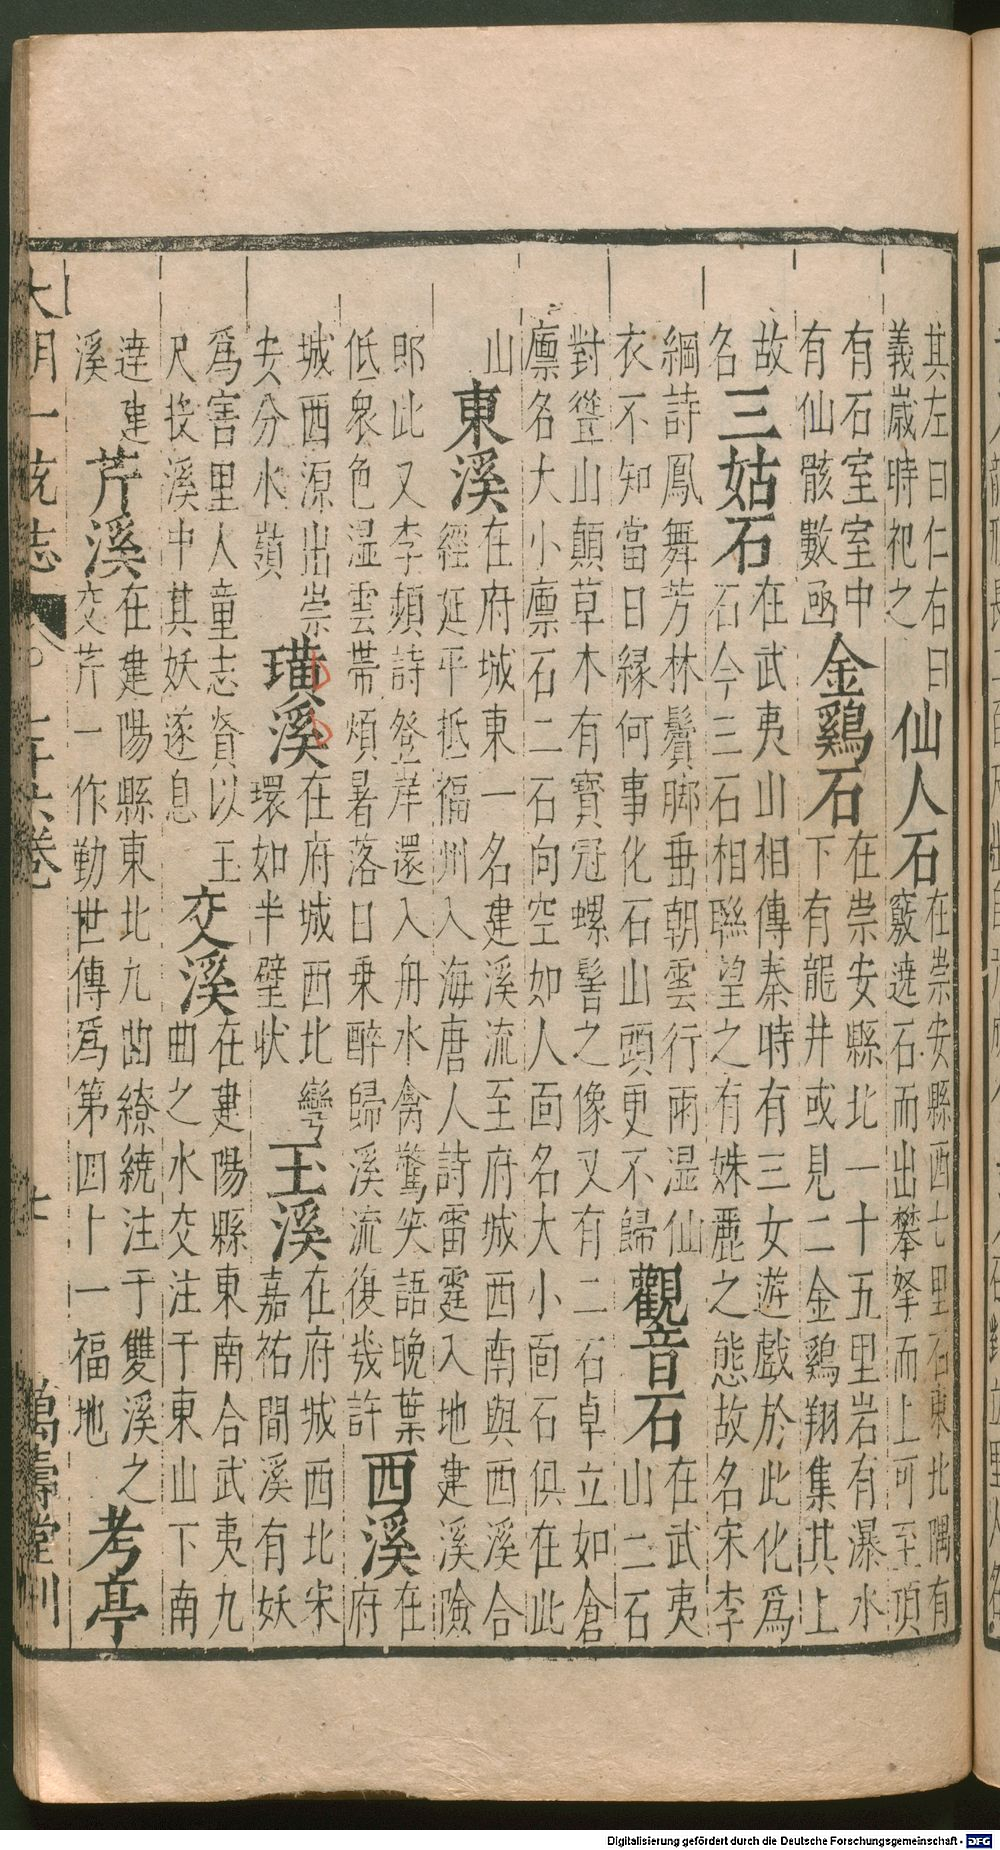 其左曰仁右曰
義歲時祀之
仙人石
在崇安縣西七里石東北隅有
竅遶石而出攀拏而上可至頂
有石室室中
有仙骸數函
金鷄石
在崇安縣北一十五里岩有瀑水
下有龍井或見二金鷄翔集其上
故
名
三姑石
在武夷山相傳秦時有三女遊戲於此化為
石今三石相聯望之有姝麗之態故名宋李
綱詩鳳舞芳林鬢脚垂朝雲行雨湿仙
衣不知當日緣何事化石山頭更不歸
觀音石
在武夷
山二石
對聳山顛草木有寳冠螺髻之像又有二石卓立如倉
廪名大小廪石二石向空如人靣名大小靣石俱在此
山
東溪
在府城東一名建溪流至府城西南與西溪合
經延平抵福州入海唐人詩雷霆入地建溪險
郎此又李頻詩登岸還入舟水禽驚笑語晚葉
低衆色湿雲帶煩暑落日乗醉歸溪流復幾許
西溪
在
府
城西源出崇
安分水嶺
璜溪
在府城西北彎
環如半璧狀
玉溪
在府城西北宋
嘉祐間溪有妖
為害里人童志賫以玉
尺投溪中其妖遂息
交溪
在建陽縣東南合武夷九
曲之水交注于東山下南
達建
溪
芹溪
在建陽縣東北九曲繚繞注于雙溪之
交芹一作勤世傳為第四十一福地
考亭
大明一統志
七十六卷
萬壽堂刊
Digitalisierung gefördert durch die Deutsche Forschungsgemeinschaft - DFG